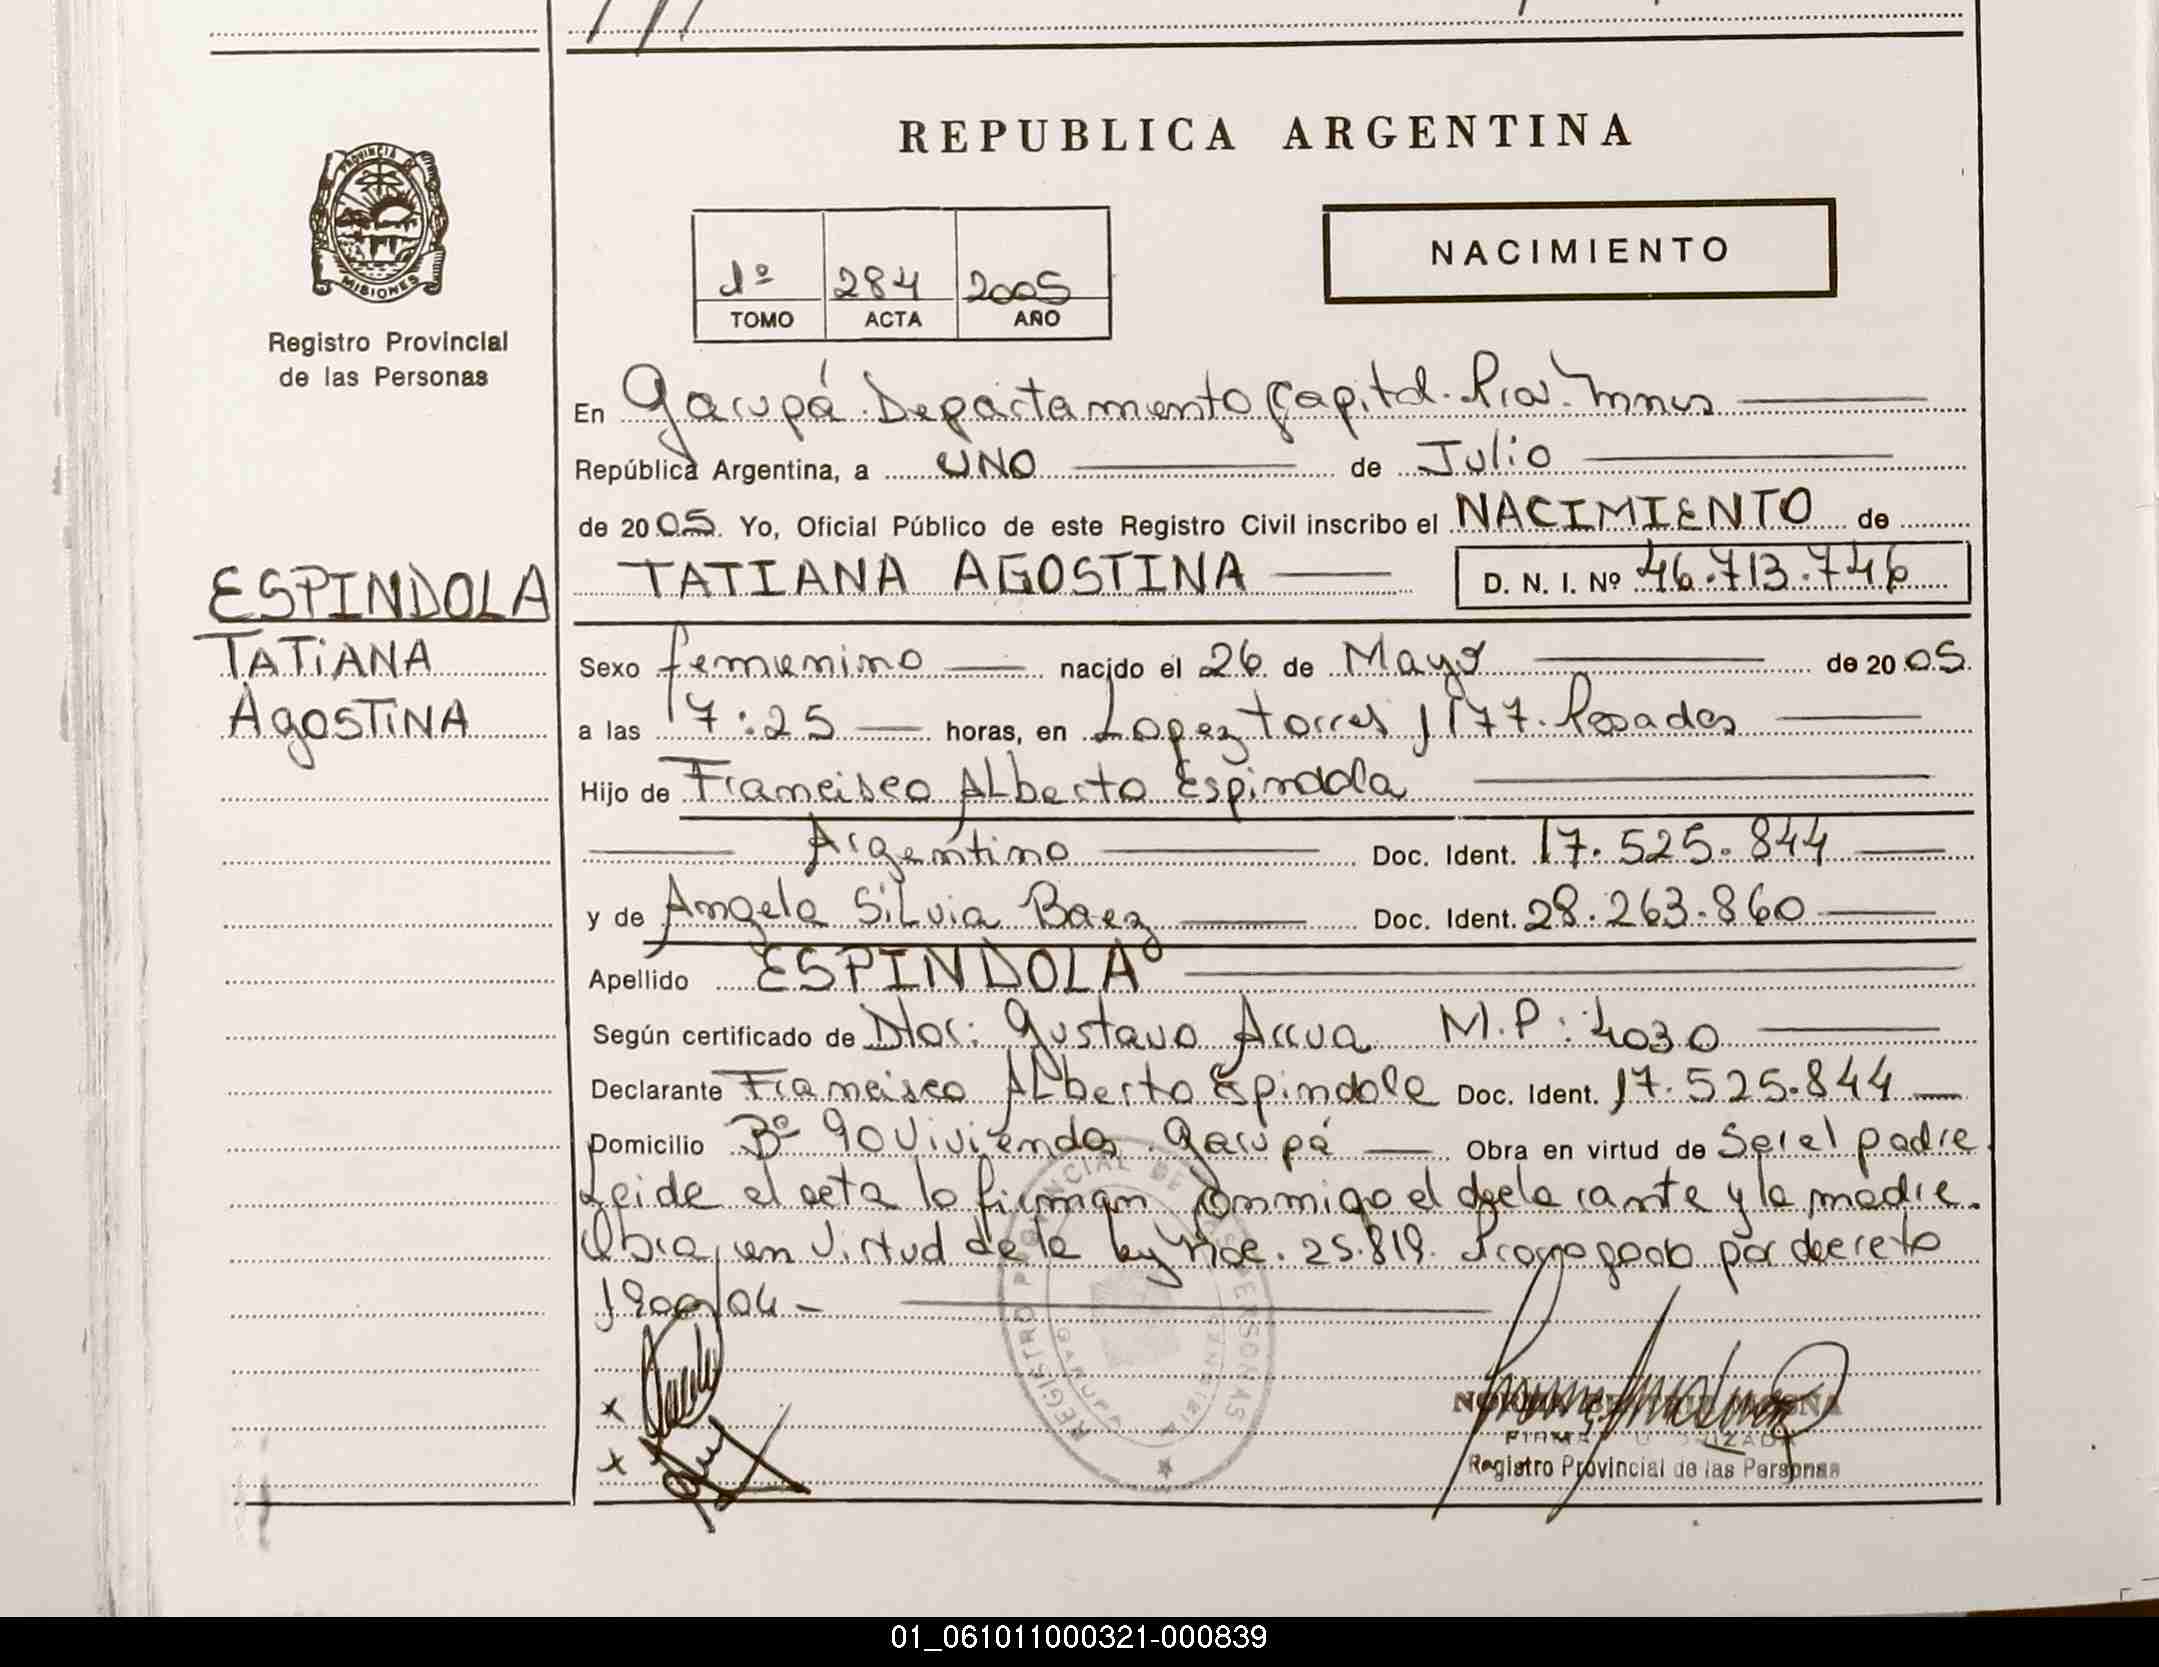 REPUBLICA ARGENTINA
PROVINCIA DE
MISIONES
Registro Provincial
de las Personas
NACIMIENTO
1º 284 2005
TOMO ACTA AÑO
En Garupá Departamento Capital. Prov. Mnes
República Argentina, a UNO de Julio
de 2005. Yo, Oficial Público de este Registro Civil inscribo el NACIMIENTO de
TATIANA AGOSTINA D. N. I. Nº 46.713.746
ESPINDOLA
TATiANA
AgosTiNA
Sexo femenino nacido el 26 de Mayo de 2005.
a las 17:25 horas, en Lopez Torres 1177. Posadas
Hijo de Francisco ALberto Espindola
Argentino Doc. Ident. 17.525.844
y de Angela SiLvia Baez Doc. Ident. 28.263.860
Apellido ESPINDOLA
Según certificado de Dtor: Gustavo Arrua M.P: 4030
Declarante Francisco ALberto Espindola Doc. Ident. 17.525.844
Domicilio Bº 90 Viviendas. Garupá Obra en virtud de Ser el padre.
Leida el acta lo firman conmigo el declarante y la madre.
Obra en Virtud de la ley Nac. 25.819. Prorrogado por decreto
1900/04-
x
x
REGISTRO PROVINCIAL DE LAS PERSONAS
FIRMA AUTORIZADA
Registro Provincial de las Personas
01_061011000321-000839